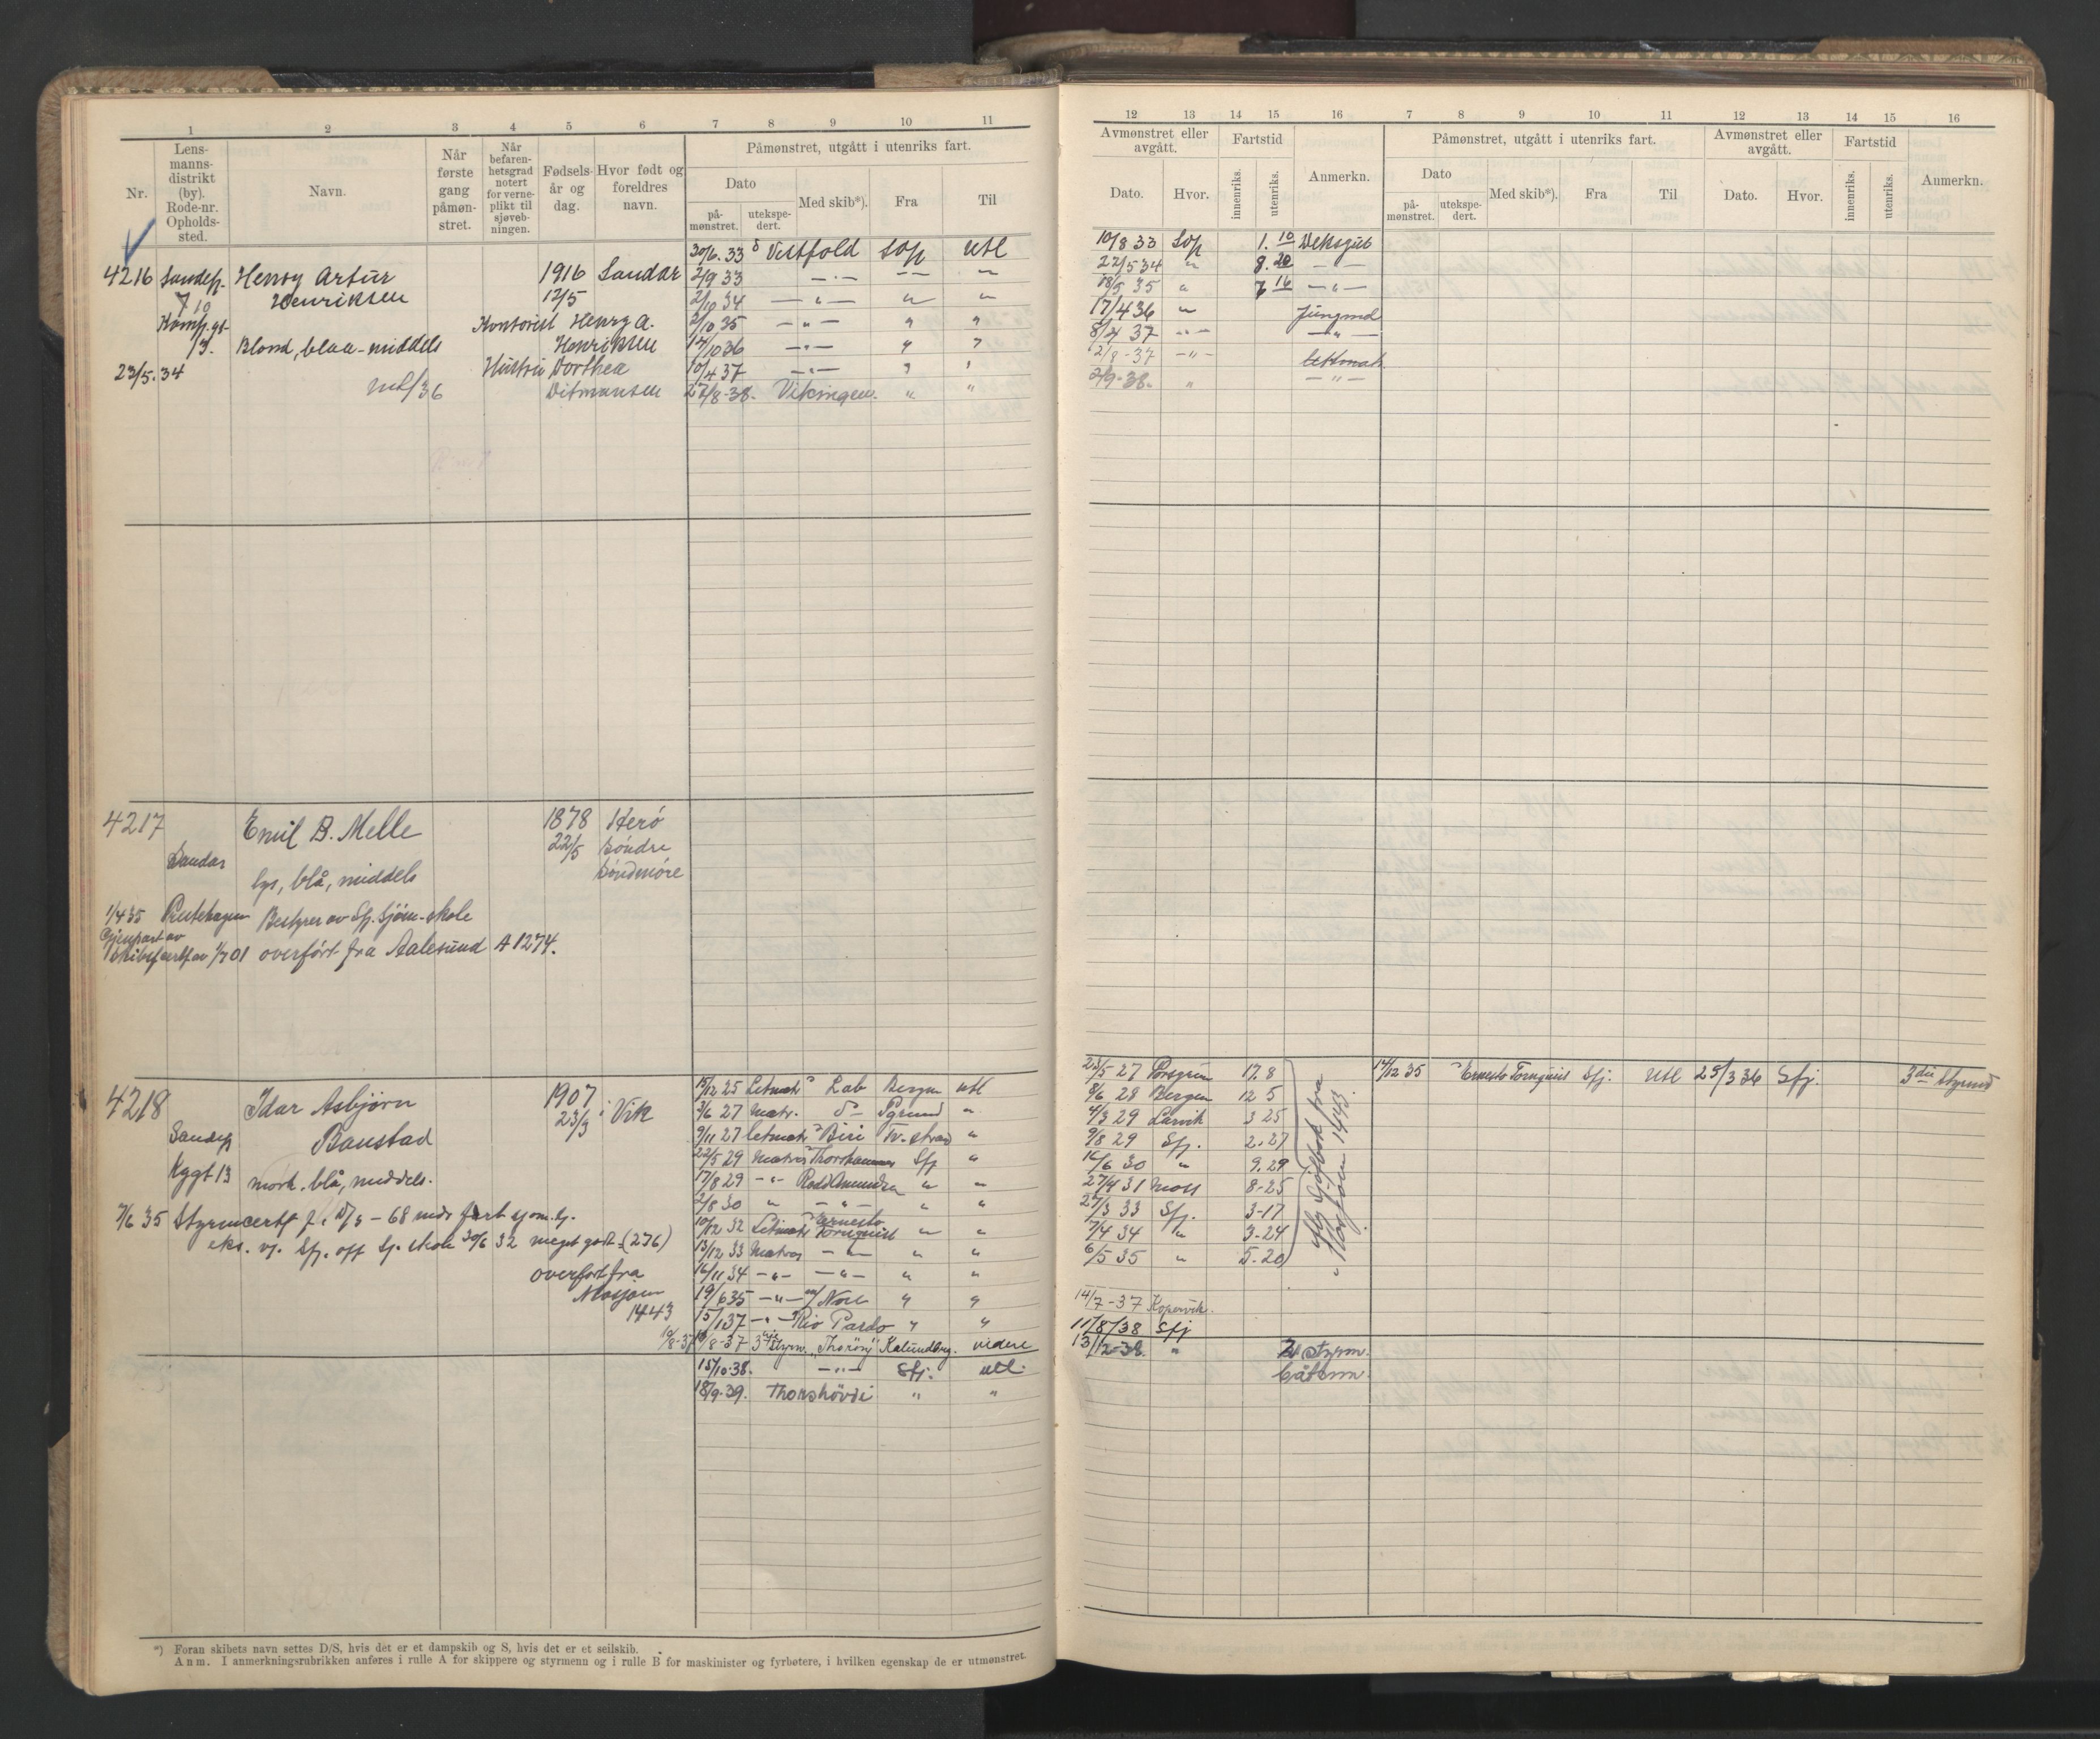 1 2 3 4 5 6 7 8 9 10 11
Nr.
Lens-
manns-
distrikt
(by).
Rode-nr.
Opholds-
sted.
Navn.
Når
første
gang
påmøn-
stret.
Når
befaren-
hetsgrad
notert
for verne-
plikt til
sjøveb-
ningen.
Fødsels-
år og
dag.
Hvor født og
foreldres
navn.
Påmønstret, utgått i utenriks fart.
Dato
på-
mønstret.
utekspe-
dert.
Med skib*).
Fra
Til
4216 Sandefj. Henry Artur 1916 Sandar
7 10 Henriksen 12/5
Kamp.gt. Kontorist Henry A.
13. Blond, blaa-middels Henriksen
23/5.34 Hustru Dorthea
Ditmansen
30/6.33 Vestfold Sofj utl
2/9 33 —"— — —
2/10 34 —"— " "
2/10 35 —"— " "
14/10 36 —"— " "
10/4 37 —"— " "
27/8-38. Vikingen. " "
4217 Emil B. Melle 1878 Herø
Sandar 22/5 søndre
lys, blå, middels søndmøre
1/4 35 Prestehagen Bestyrer av Sfj. sjøm.-skole
Gjenpart av
skibsf certf av 1/7 01 overført fra Aalesund A 1274.
4218 Idar Asbjørn 1907 Vik
Sandefj Baustad 23/9
Kygt 13 mørk. blå, middels.
7/6 35 Styrmcertf f. D/s - 68 mdr fart
eks. v. Sfj. off Sj. skole 30/6 32 meget godt (276)
overført fra
Mosjøen
1443
15/12 25 Letmatr Lab Bergen utl
3/6 27 Matr. do Pgrund "
9/11 27 letmatr Biri Tv.strand "
22/5 29 Matros Thorshammer Sfj "
17/8 29 —"— Roald Amundsen " "
2/8 30 " —"— " "
10/12 32 Letmatr Ernesto Tornquist " "
13/12 33 Matros —"— " "
16/11 34 —"— —"— " "
19/6 35 —"— Nore " "
15/1 37 —"— Rio Pardo " "
10/8-37 3die Styrm. "Thorøn" Kalundborg. videre
15/10-38. —"— Sfj. utl.
18/9-39. Thorshövdi " "
*) Foran skibets navn settes D/S, hvis det er et dampskib og S, hvis det er et seilskib.
Anm. I anmerkningsrubrikken anføres i rulle A for skippere og styrmenn og i rulle B for maskinister og fyrbøtere, i hvilken egenskap de er utmønstret.
12 13 14 15 16 7 8 9 10 11 12 13 14 15 16
Avmønstret eller
avgått.
Dato.
Hvor.
Fartstid
innenriks.
utenriks.
Anmerkn.
Påmønstret, utgått i utenriks fart.
Dato
på-
mønstret.
utekspe-
dert.
Med skib*).
Fra
Til
Avmønstret eller
avgått.
Dato.
Hvor.
Fartstid
innenriks.
utenriks.
Anmerkn.
10/8 33 Sofj 1.10 Deksgut
22/5 34 " 8.20 — —
18/5 35 " 7 16 —"—
17/4 36 " Jungmd
8/4 37 —"— —"—
2/8-37 —"— lettmatr.
2/9-38. " —"—
23/5 27 Porsgrun 17.8
8/6 28 Bergen 12 5
4/3 29 Larvik 3 25
9/8 29 Sfj. 2.27
16/6 30 " 9.29
27/4 31 Moss 8-25
27/3 33 Sfj. 3-17
7/4 34 " 3-24
6/5 35 " 5.20
Sjöfbok fra
Mosjøen 1443.
14/12 35 Ernesto Tornquist Sfj. Utl 25/3 36 Sfj. 3die Styrmd
14/7-37 Kopervik.
11/8/38 Sfj
13/12-38. " 2 styrm.
båtsmn.